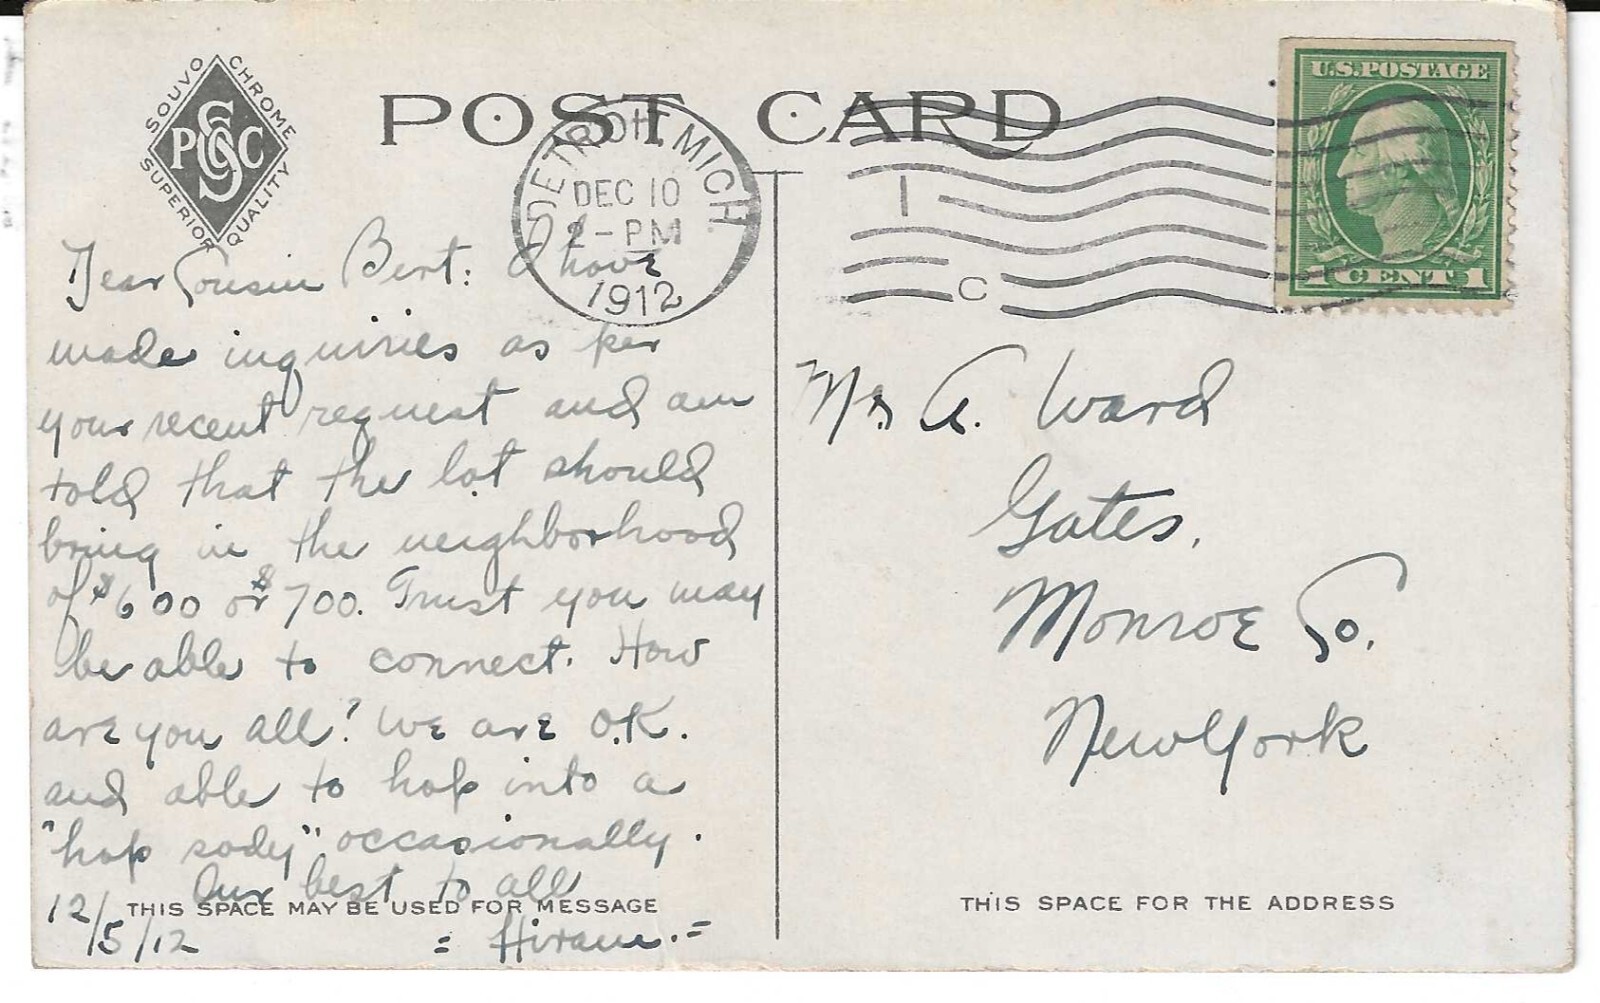 SOUVO CHROME
P S C
&
SUPERIOR QUALITY
POST CARD
DETROIT, MICH.
DEC 10
2-PM
1912
1
C
U.S. POSTAGE
1 CENT 1
Dear Cousin Bert: I have
made inquiries as per
your recent request and am
told that the lot should
bring in the neighborhood
of $600 or $700. Trust you may
be able to connect. How
are you all? We are O.K.
and able to hop into a
"hop sody" occasionally.
Our best to all
12/5/12 = Hiram. =
THIS SPACE MAY BE USED FOR MESSAGE
Mr. A. Ward
Gates,
Monroe Co.
New York
THIS SPACE FOR THE ADDRESS